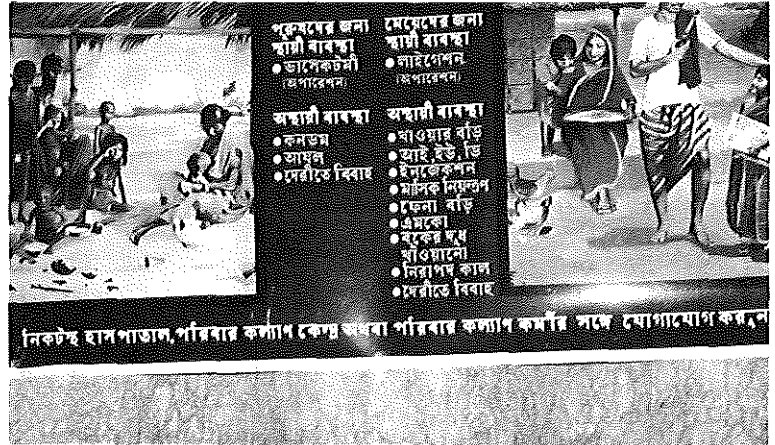 পুরুষদের জন্য
স্থায়ী ব্যবস্থা
● ভাসেকটমী
(অপারেশন)
অস্থায়ী ব্যবস্থা
● কনডম
● আযল
● দেরীতে বিবাহ
মেয়েদের জন্য
স্থায়ী ব্যবস্থা
● লাইগেশন
(অপারেশন)
অস্থায়ী ব্যবস্থা
● খাওয়ার বড়ি
● আই, ইউ, ডি
● ইনজেকশন
● মাসিক নিয়ন্ত্রণ
● ফেনা বড়ি
● এমকো
● বুকের দুধ
খাওয়ানো
● নিরাপদ কাল
● দেরীতে বিবাহ
নিকটস্থ হাসপাতাল, পরিবার কল্যাণ কেন্দ্র অথবা পরিবার কল্যাণ কর্মীর সঙ্গে যোগাযোগ করুন